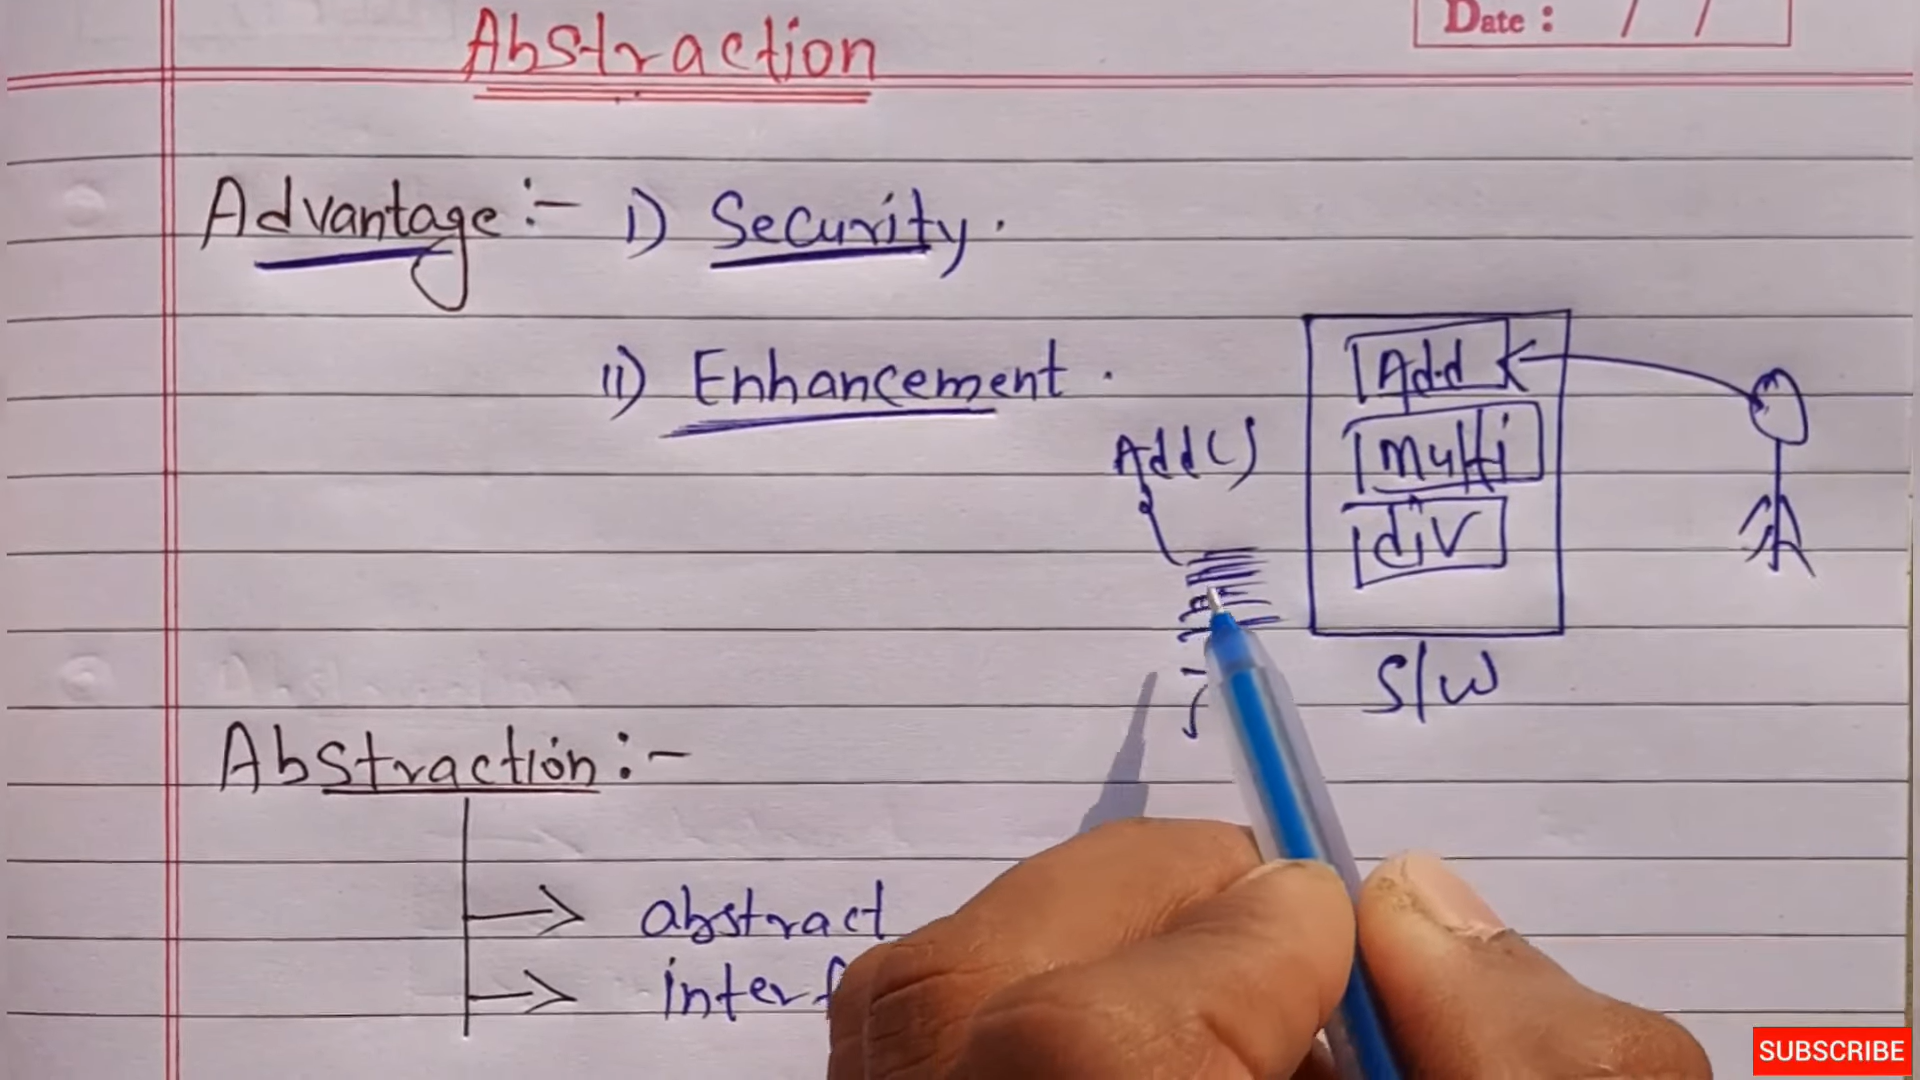 Abstraction
Date : / /
Advantage :- i) Security .
ii) Enhancement .
Add
Add()
multi
div
S/W
Abstraction :-
abstract
SUBSCRIBE